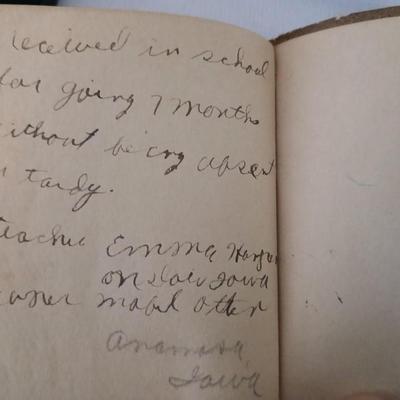 received in school
for going 7 months
without being absent
tardy.
teacher Emma
onslow Iowa
owner mabel Otter
Anamosa
Iowa